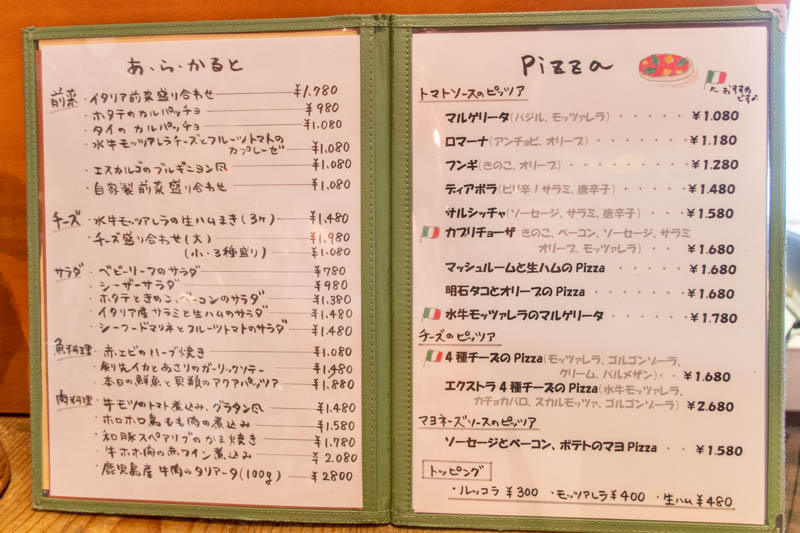 あ・ら・かると
前菜 ・イタリア前菜盛り合わせ ¥1.780
・ホタテのカルパッチョ ¥980
・タイのカルパッチョ ¥1.080
・水牛モッツァレラチーズとフルーツトマトの
カプレーゼ ¥1.080
・エスカルゴのブルギニョン風 ¥1.080
・自家製前菜盛り合わせ ¥1.080
チーズ ・水牛モッツァレラの生ハムまき(3ヶ) ¥1.480
・チーズ盛り合わせ(大) ¥1.980
(小・3種盛り) ¥1.080
サラダ ・ベビーリーフのサラダ ¥780
・シーザーサラダ ¥980
・ホタテときのこ、ベーコンのサラダ ¥1.380
・イタリア産サラミと生ハムのサラダ ¥1.480
・シーフードマリネとフルーツトマトのサラダ ¥1.480
魚料理 ・赤エビのハーブ焼き ¥1.080
・剣先イカとあさりのガーリックソテー ¥1.480
・本日の鮮魚と貝類のアクアパッツァ ¥1.880
肉料理 ・牛モツのトマト煮込み、グラタン風 ¥1.480
・ホロホロ鳥もも肉の煮込み ¥1.580
・和豚スペアリブのかま焼き ¥1.780
・牛ホホ肉の赤ワイン煮込み ¥2.080
・鹿児島産牛肉のタリアータ(100g) ¥2800
Pizza
おすすめ
ですよ
トマトソースのピッツア
マルゲリータ(バジル、モッツァレラ) ・・・・・ ¥1.080
ロマーナ(アンチョビ、オリーブ) ・・・・・・ ¥1.180
フンギ(きのこ、オリーブ) ・・・・・・・・ ¥1.280
ディアボラ(ピリ辛!サラミ、唐辛子) ・・・・ ¥1.480
サルシッチャ(ソーセージ、サラミ、唐辛子) ・・・ ¥1.580
カプリチョーザ きのこ、ベーコン、ソーセージ、サラミ
オリーブ、モッツァレラ) ・・・ ¥1.680
マッシュルームと生ハムのPizza ・・・・・ ¥1.680
明石タコとオリーブのPizza ・・・・・・ ¥1.680
水牛モッツァレラのマルゲリータ ・・・・・ ¥1.780
チーズのピッツア
4種チーズのPizza(モッツァレラ、ゴルゴンゾーラ、
クリーム、パルメザン)・・ ¥1.680
エクストラ4種チーズのPizza(水牛モッツァレラ、
カチョカバロ、スカルモッツァ、ゴルゴンゾーラ) ¥2.680
マヨネーズソースのピッツア
ソーセージとベーコン、ポテトのマヨPizza ・・ ¥1.580
トッピング
・ルッコラ ¥300 ・モッツアレラ ¥400 ・生ハム ¥480